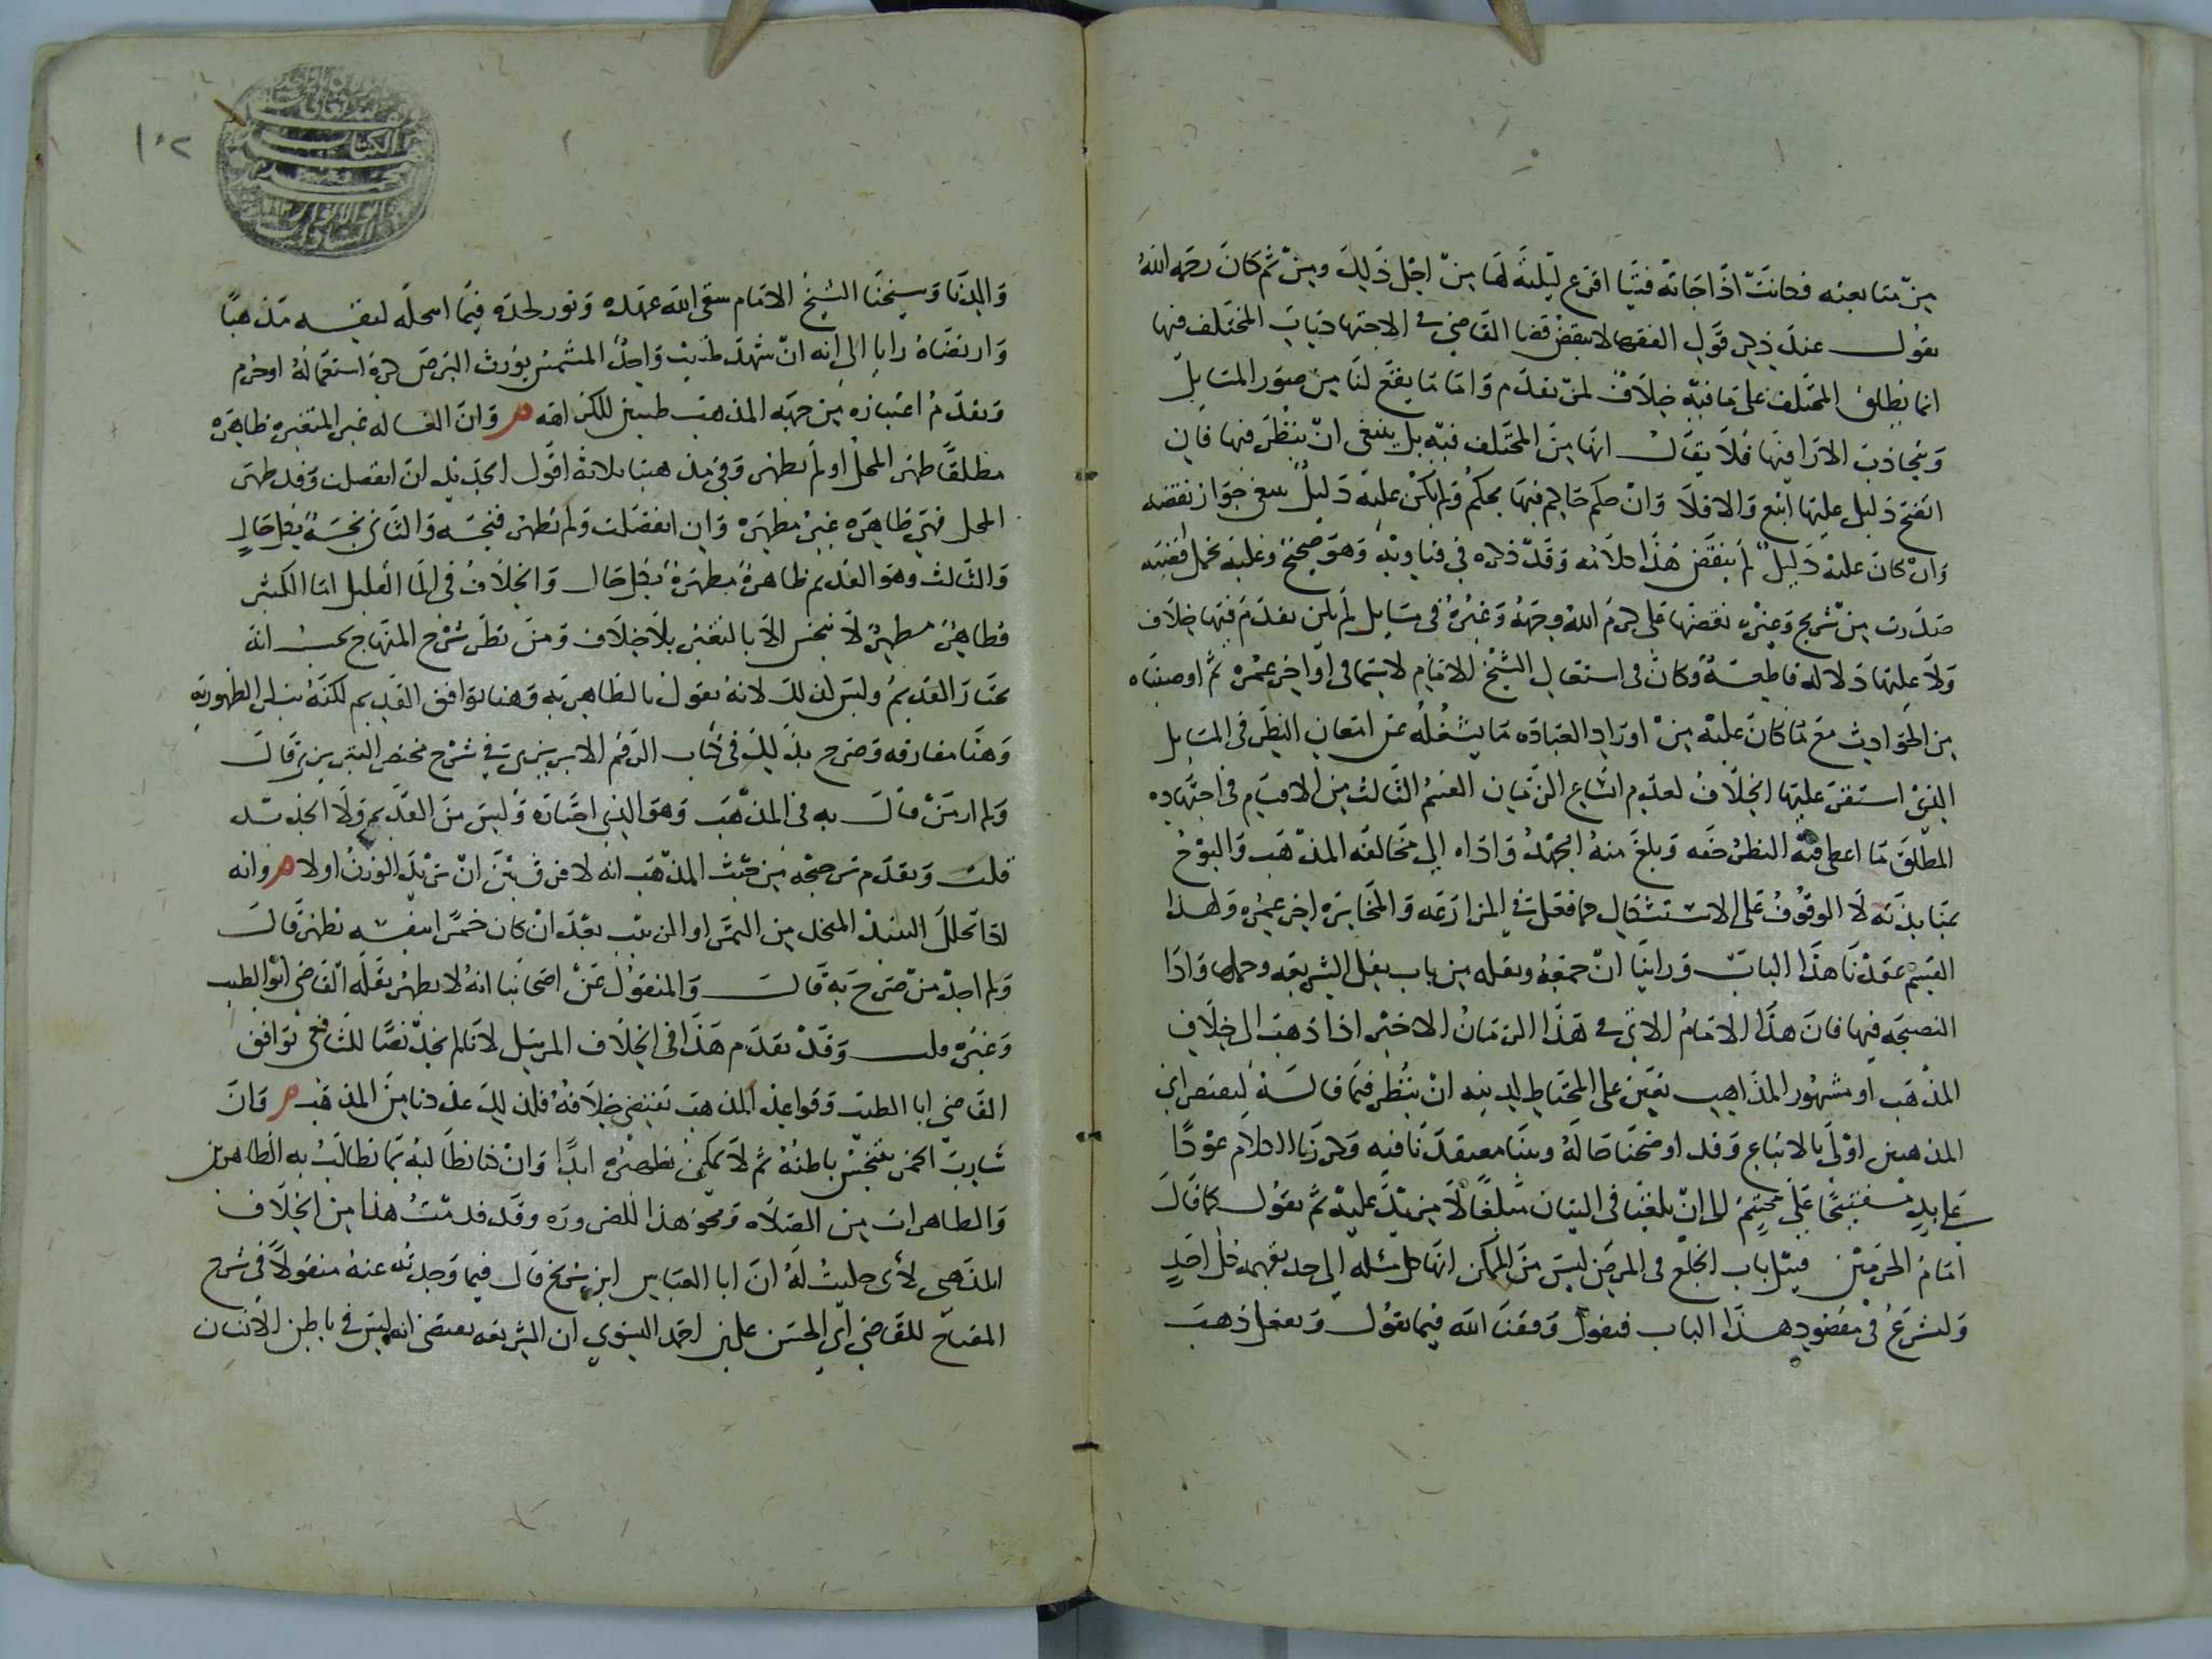 من متابعته فكانت اذا جاته فتيا اقرع ليلته لها من اجل ذلك ومن ثم كان رحمه الله
يقول عند ذكر قول الفقها لا ينقض قضا القاضي في الاجتهاديات المختلف فيها
انما يطلق المختلف على ما فيه خلاف لمن تقدم واما ما يقع لنا من صور المسايل
وتتجاذب الارا فيها فلا يقال انها من المختلف فيه بل ينبغي ان ينظر فيها فان
اتضح دليل عليها اتبع والا فلا وان حكم حاكم فيها بحكم ولم يكن عليه دليل ينبغي جواز نقضه
وان كان عليه دليل لم ينقض هذا كلامه وقد ذكره في فتاويه وهو صحيح وعليه تحمل اقضية
صدرت من شريح وغيره نقضها علي كرم الله وجهه وغيره في مسايل لم يكن تقدم فيها خلاف
ولا عليها دلالة قاطعة وكان في استقبال الشيخ الامام لا سيما في اواخر عمره ثم اوصيناه
من الحوادث مع ما كان عليه من اوراد العبادة ما يشغله عن امعان النظر في المسايل
الذي استقر عليها الخلاف لعدم اتساع الزمان القسم الثالث من الاقسام في اجتهاده
المطلق ما اعطى فيه النظر حقه وبلغ منه الجهد واداه الى مخالفة المذهب والبوح
بمنابذته لا الوقوف على الاستشكال كما فعل في المزارعة والمخابرة اخر عمره ولهذا
القسم عقدنا هذا الباب وراينا ان جمعه ونقله من باب نقل الشريعة وحملها واذا
النصيحة فيها فان هذا الامام الاتي في هذا الزمان الاخير اذا ذهب الى خلاف
المذهب او مشهور المذاهب تعين على المحتاط لدينه ان ينظر فيما قاله ليعتصر اي
المذهبين اولى بالاتباع وقد اوضحنا حاله وبينا معتقدنا فيه وكررنا الكلام عودا
على بدء مفتتحا على مختتم الى ان بلغنا في البيان مبلغا لا مزيد عليه ثم نقول كما قال
امام الحرمين قبيل باب الخلع في المرض ليس من الممكن انها كل مسئلة الى حد يفهمه كل احد
ولنشرع في مقصود هذا الباب فنقول وفقنا الله فيما نقول ونفعل ذهب
١٠٢
والدنا وشيخنا الشيخ الامام سقى الله عهده ونور لحده فيما انتحله لنفسه مذهبا
وارتضاه رايا الى انه ان شهد طبيب واحد المشمس يورث البرص كره استعماله او حرم
وتقدم اعتباره من جهة المذهب طبيبين للكراهة ه وان الغسالة غير المتغيرة طاهرة
مطلقا طهر المحل او لم يطهر وفي مذهبنا ثلاثة اقوال الجديد ان انفصلت وقد طهر
المحل فهي طاهرة غير مطهرة وان انفصلت ولم تطهر فنجسة والثاني نجسة بكل حال
والثالث وهو القديم طاهرة مطهرة بكل حال والخلاف في الما القليل اما الكثير
فطاهر مطهر لا ينجس الا بالتغير بلا خلاف ومن نظر شرح المنهاج يحسب انه
يختار القديم وليس كذلك لانه يقول بالطاهرية وهنا يوافق القديم لكنه يسلب الطهورية
وهنا مفارقه وصرح بذلك في كتاب الرقم الابريزي في شرح مختصر التبريزي قال
ولم ار من قال به في المذهب وهو الذي اختاره وليس من القديم ولا الجديد
قلت وتقدم ترجيحه من حيث المذهب انه لا فرق بين ان يزيد الوزن او لا ه وانه
اذا تخلل النبيذ المتخذ من التمر او الزبيب بعد ان كان خمرا بنفسه يطهر قال
ولم اجد من صرح به قال والمنقول عن اصحابنا انه لا يطهر نقله القاضي ابو الطيب
وغيره قلت وقد تقدم هذا في الخلاف المرسل لانا لم نجد نصا للشافعي يوافق
القاضي ابا الطيب وقواعد المذهب تقتضي خلافه فلذلك عددنا من المذهب ه وان
شارب الخمر ينجس باطنه ثم لا يمكن تطهيره ابدا وان كنا نطالبه بما نطالب به الطاهرين
والطاهرات من الصلاة ونحو هذا للضرورة وقد قدمت هذا من الخلاف
المذهبي لاني حكيت له ان ابا العباس ابن سريج قال فيما وجدته عنه منقولا في شرح
المفتاح للقاضي ابي الحسن علي بن احمد النسوي ان الشريعة تقتضي انه ليس في باطن الانسان